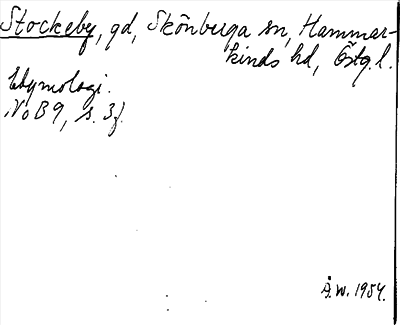 Stockeby, gd, Skönberga sn, Hammar-
kinds hd, Östg.l.
Etymologi.
NoB 9, s. 3f.
Å.W. 1954.